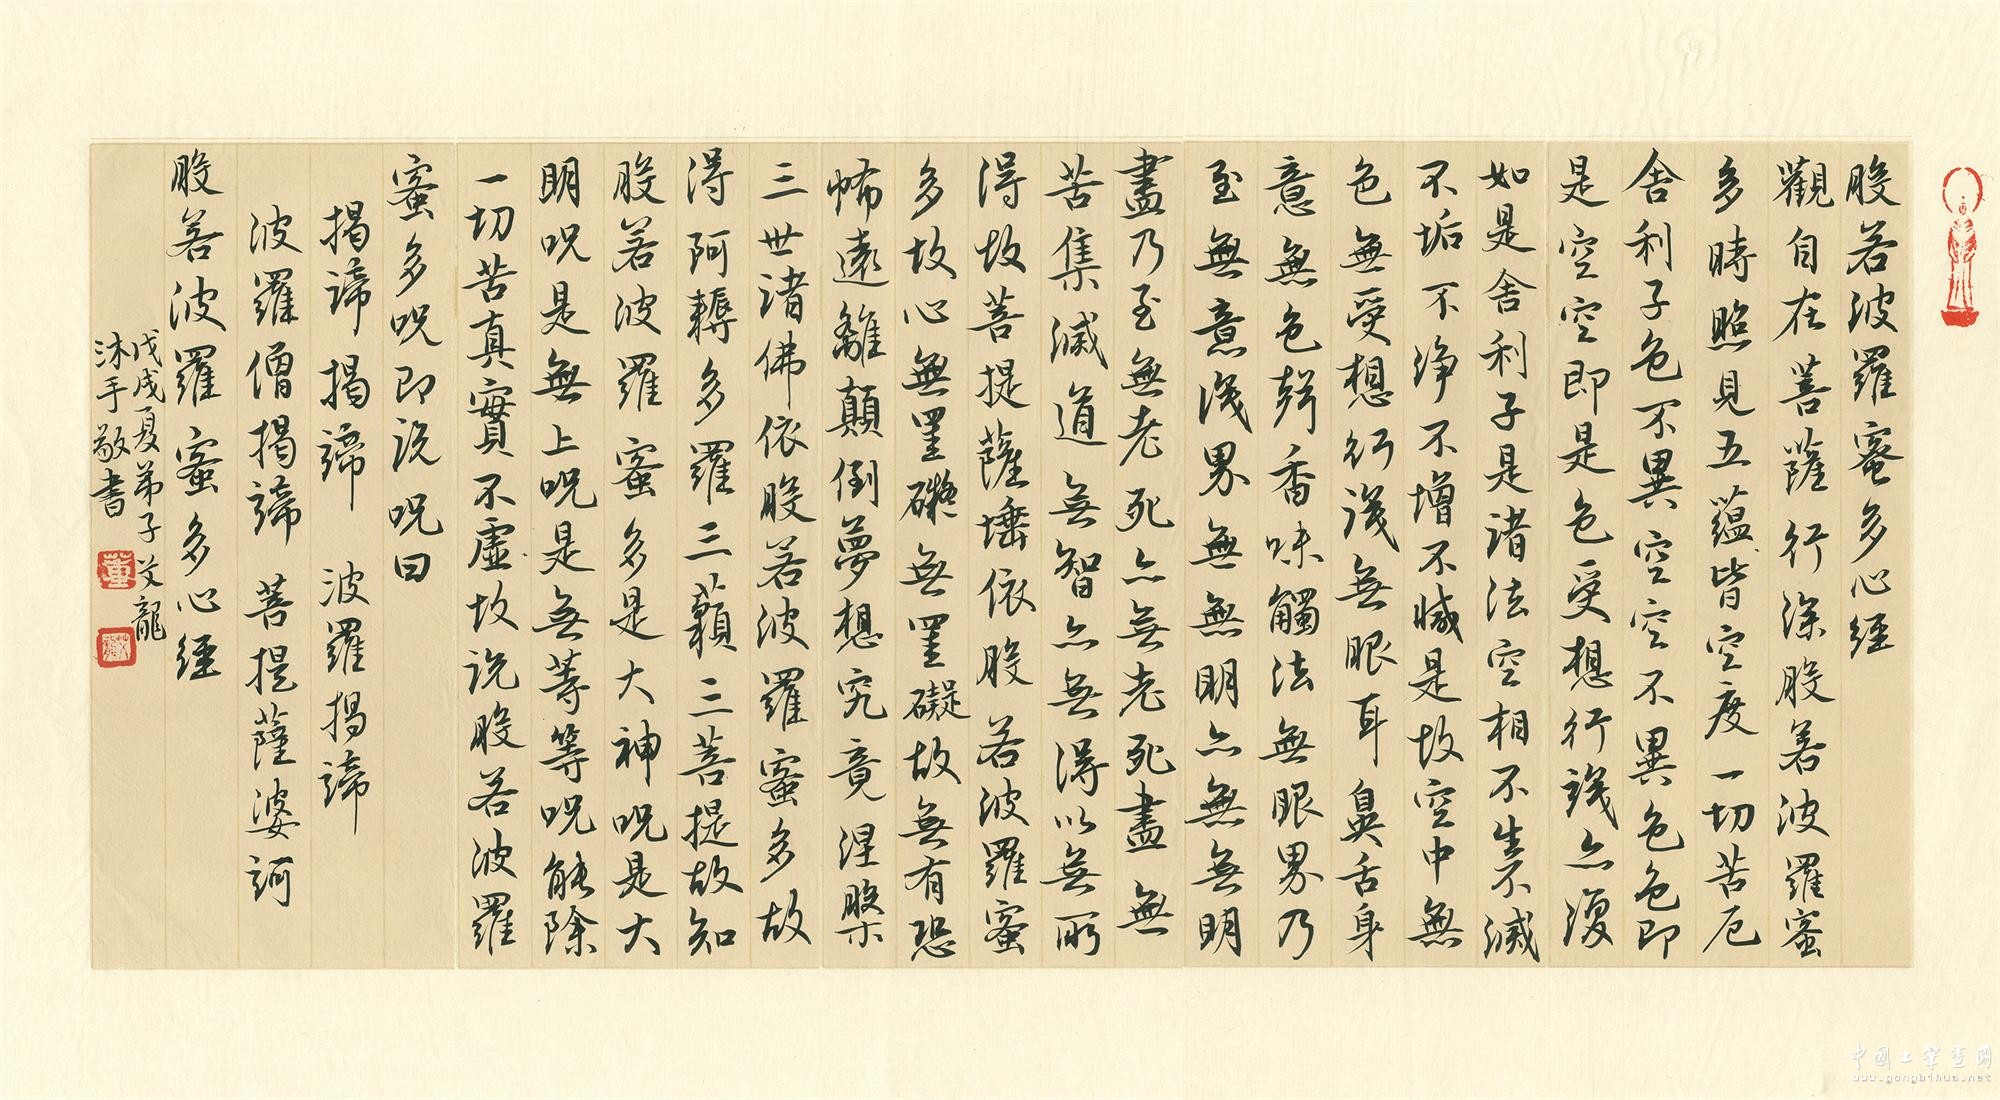 般若波羅蜜多心經
觀自在菩薩行深般若波羅蜜
多時照見五蘊皆空度一切苦厄
舍利子色不異空空不異色色即
是空空即是色受想行識亦復
如是舍利子是諸法空相不生不滅
不垢不淨不增不減是故空中無
色無受想行識無眼耳鼻舌身
意無色聲香味觸法無眼界乃
至無意識界無無明亦無無明
盡乃至無老死亦無老死盡無
苦集滅道無智亦無得以無所
得故菩提薩埵依般若波羅蜜
多故心無罣礙無罣礙故無有恐
怖遠離顛倒夢想究竟涅槃
三世諸佛依般若波羅蜜多故
得阿耨多羅三藐三菩提故知
般若波羅蜜多是大神呪是大
明呪是無上呪是無等等呪能除
一切苦真實不虛故說般若波羅
蜜多呪即說呪曰
揭諦揭諦 波羅揭諦
波羅僧揭諦 菩提薩婆訶
般若波羅蜜多心經
戊戌夏弟子艾龍
沐手敬書
董
中國工筆畫網
www.gongbihua.net